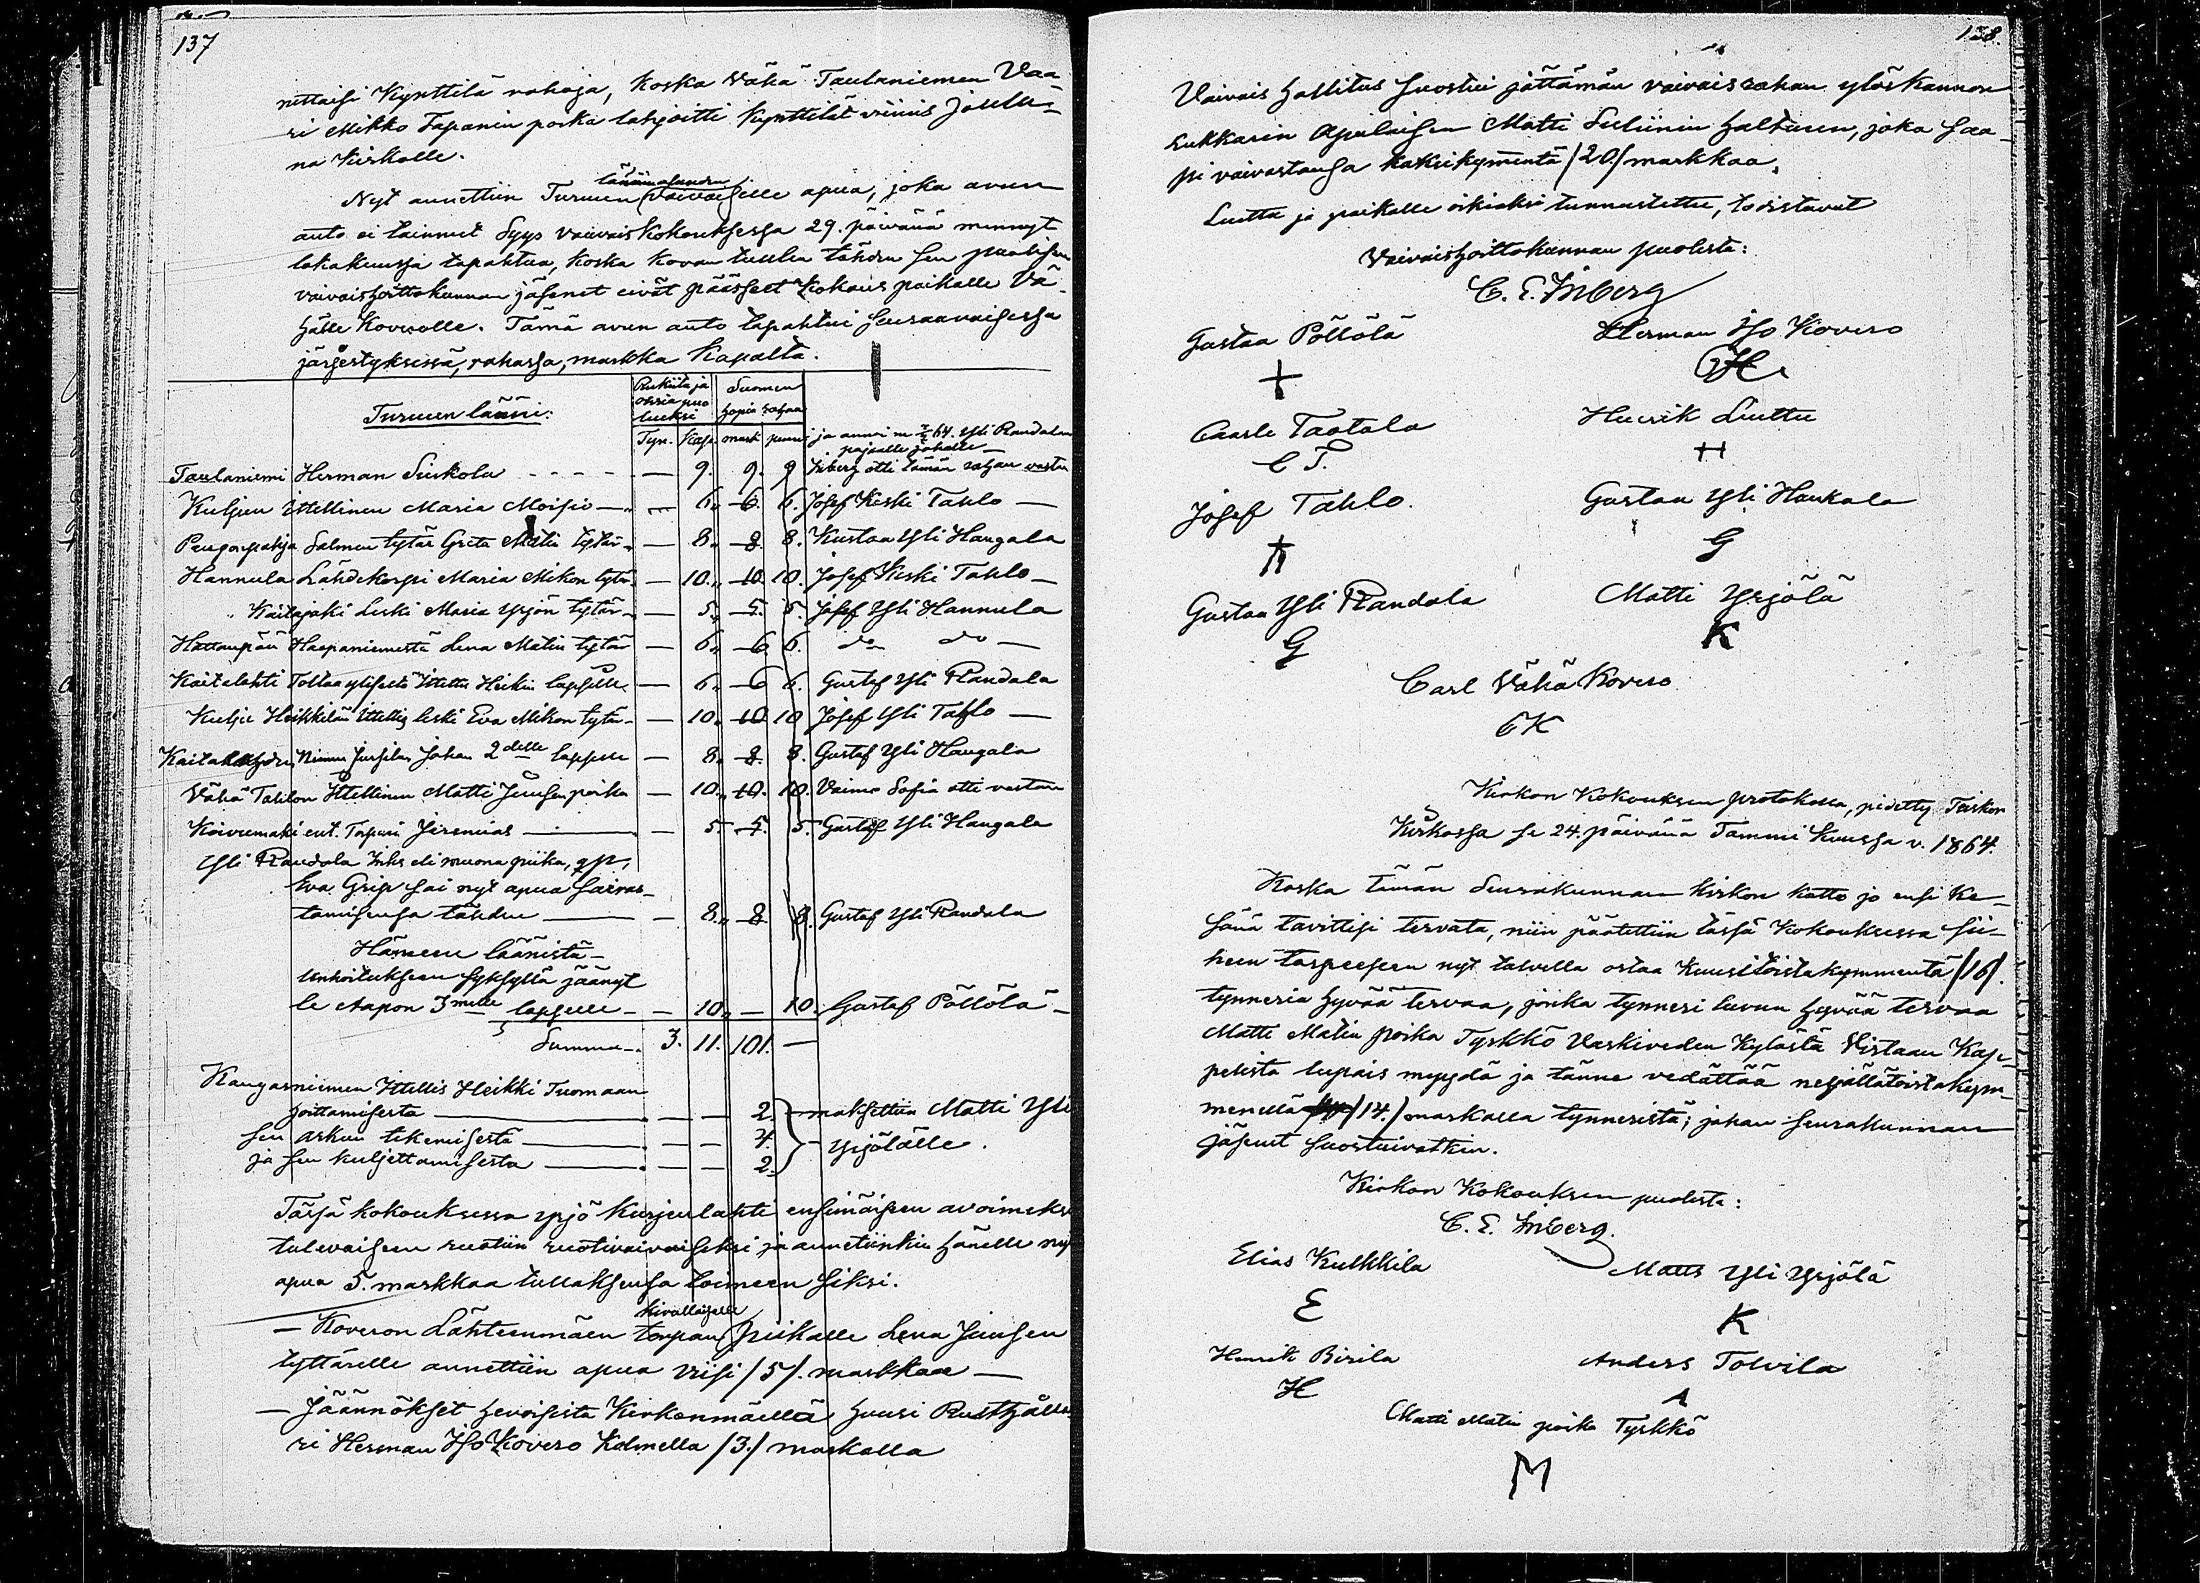 137
nittaisi Kynttilä rahoja, koska Vähä Taulaniemen Vaa-
ri Mikko Tapanin poika lahjoitti kynttilät viimis joulu-
na kirkolle.
läänin asuvden
Nyt annettiin Turuun vaivaiselle apua, joka avun
anto ei tainnut Syys vaivais Kokouksessa 29. päivänä mennyt
lokakuussa tapahtua, koska kovan tuulen tähden sen puolisen
vaivaishoittokunnan jäsenet eivät päässeet Kokous paikalle Vä-
hälle Koverolle. Tämä avun anto tapahtui seuraavaisessa
järjestyksessä, rahassa, markka kapalta.
Turuun lääni: Rukiita ja ohria puoleksi Suomen hopia rahaa
Tyn. Kap. mark penni ja annoi 64. Yli Randalan
pajalle
Taulaniemi Herman Sirkola — 9. 9. 9 Inberg otti tämän rahan vastan
Kuljun Ittellinen Maria Moisio — 6. 6. 6. Josef Keski Tahlo —
Pengonpohja Salmen tytär Greta Matin tytär — 8. 8. 8. Kustaa Yli Haugala
Hannula Lähdekorpi Maria Mikon tytär — 10. 10. 10. Josef Keski Tahlo —
Kaitajaki Leski Maria Yrjön tytär — 5. 5. 5. Josef Yli Hannula
Hattanpään Haapaniemestä Lena Matin tytär — 6. 6. 6. do do —
Kaitalahti Toltaa ylisestä Ittellis Heikin lapselle — 6. 6 6. Gustaf Yli Randala
Kulju Heikkilän Ittellis leski Eva Mikon tytär — 10. 10 10 Josef Yli Tahlo —
Kaitalahden Niemi Jussilan Johan 2delle lapselle — 8. 8. 8. Gustaf Yli Haugala
Vähä Tahlon Ittellinen Matti Juusen poika — 10. 10. 10. Vaimo Sofia otti vastan
Koivumäki ent. Torpari Jeremias — 5. 5. 5. Gustaf Yli Haugala
Yli Randala Inhs eli muona piika,
Eva Grip sai nyt apua sairas-
tamisensa tähden — 8. 8. 8. Gustaf Yli Randala
Hämeen läänistä
Unhoitukseen syksyllä jäänyt
le Aapon 3melle lapselle — 10. — 10. Gustaf Pöllölä —
Summa — 3. 11. 101. —
Kangasniemen Ittellis Heikki Tuomaan
hoittamisesta — — — 2. maksettiin Matti Yli
sen arkun tekemisestä — — — 4. Yrjölälle.
ja sen kuljettamisesta — — — 2.
Tässä kokouksessa Yrjö Kurjenlahti ensimäiseen avoimeksi
tulevaiseen ruotiin ruotivaivaiseksi ja annettiinkin hänelle nyt
apua 5. markkaa tullaksensa toimeen siksi.
kivulloiselle
— Koveron Lähteenmäen torpan piikalle Lena Juusen
tyttärelle annettiin apua viisi /5/. markkaa —
— Jäännökset hevoisista Kirkonmäellä huusi Rusthålla-
ri Herman Iso Kovero Kolmella /3./ markalla
138.
Vaivais Hallitus suostui jättämän vaivais rahan ylöskannon
Lukkarin Apulaisen Matti Seliinin haltuun, joka saa-
pi vaivastansa kaksikymmentä /20/ markkaa.
Luettu ja paikalle oikiaksi tunnustettu, todistavat
Vaivaishoittokunnan puolesta:
C. E. Inberg
Gustaa Pöllölä Herman Iso Kovero
+ H
Caarle Taatala Henrik Liuttu
C T. H
Josef Tahlo. Gustaa Yli Haukala
G
Gustaa Yli Randala Matti Yrjölä
G K
Carl Vähä Kovero
C K
Kirkon Kokouksen protokolla, pidetty Teiskon
Kirkossa se 24. päivänä Tammi Kuussa v. 1864.
Koska tämän Seurakunnan kirkon katto jo ensi ke-
sänä tavittisi tervata, niin päätettiin tässä Kokouksessa sii-
heen tarpeeseen nyt talvella ostaa Kuusitoistakymmentä /16/.
tynneria hyvää tervaa, jonka tynneri luvun hyvää tervaa
Matti Matin poika Tyrkkö Vaskiveden Kylästä Virtaan Kap-
pelista lupais myydä ja tänne vedättää neljällätoistakym-
menellä /14./ markalla tynneristä; johon seurakunnan
jäsenet suostuivatkin.
Kirkon Kokouksen puolesta:
C. E. Inberg.
Elias Kulkkila Matts Yli Yrjölä
E K
Henrik Birila Anders Tolvila
H A
Matti Matin poika Tyrkkö
M